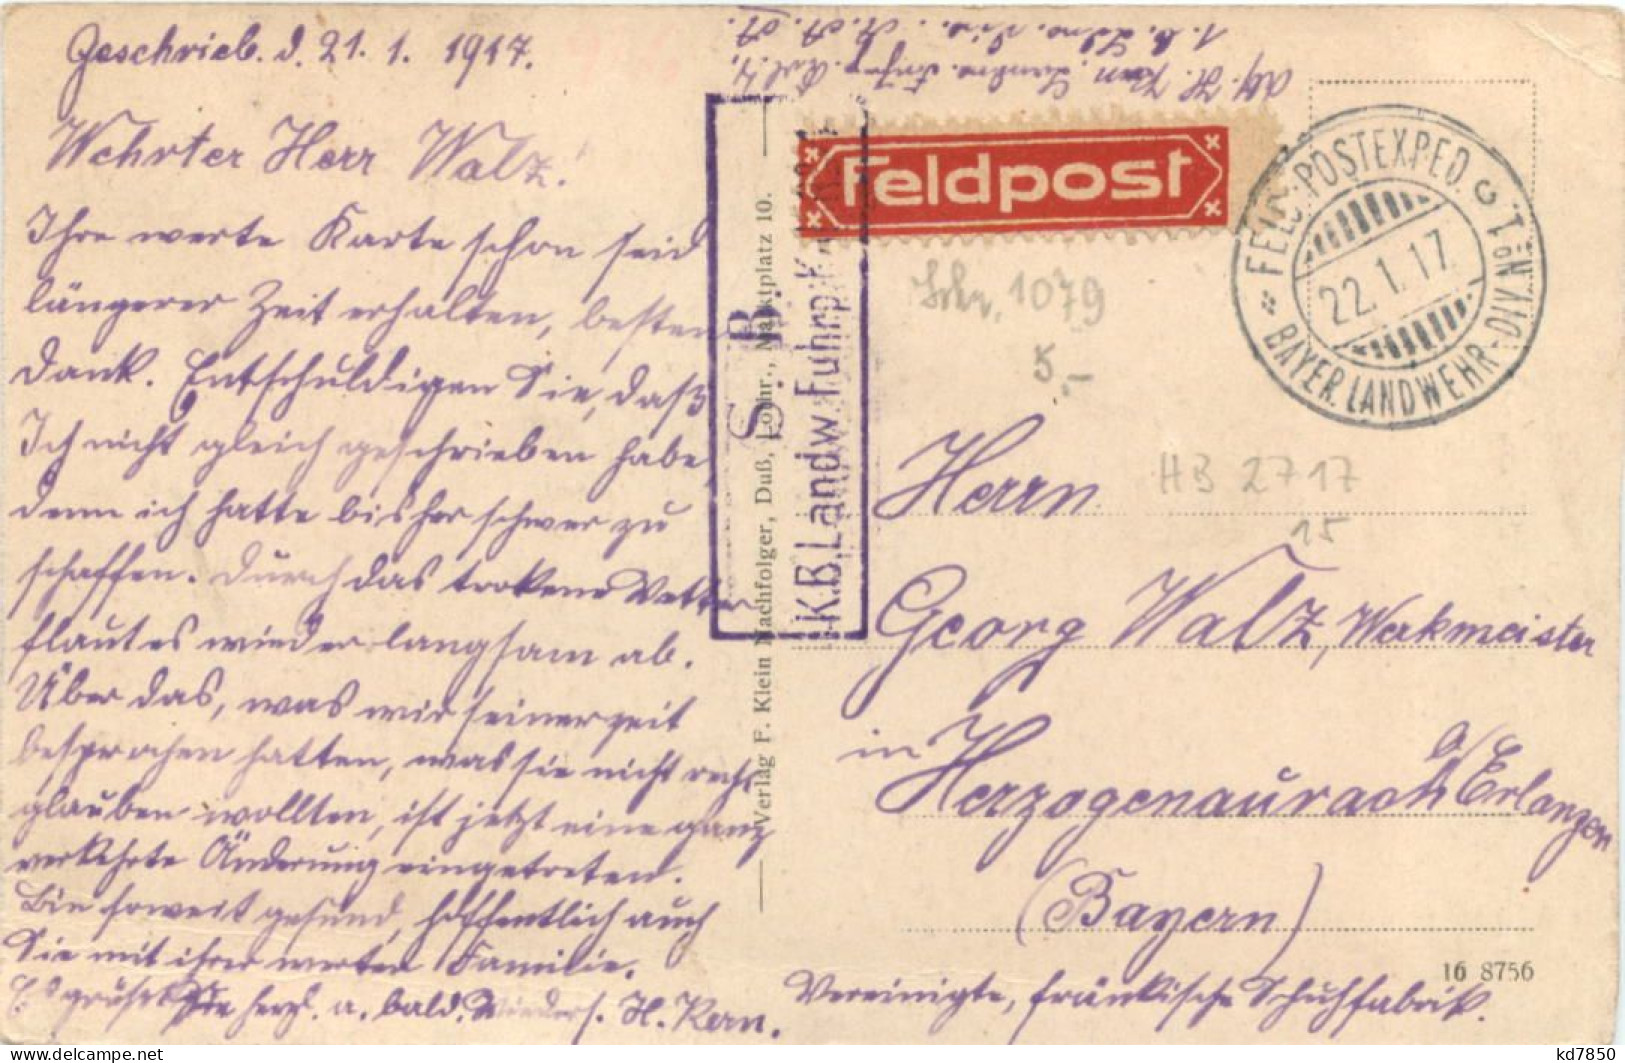 Geschrieb. d. 21. 1. 1917.
Wehrter Herr Walz!
Ihre werte Karte schon seid
längerer Zeit erhalten, besten
Dank. Entschuldigen Sie, daß
Ich nicht gleich geschrieben habe,
denn ich hatte bisher schwer zu
schaffen. Durch das trokene Wetter
flaut es wieder langsam ab.
Über das, was wir seinerzeit
besprochen hatten, was sie nicht recht
glauben wollten, ist jetzt eine ganz
verkehrte Änderung eingetreten.
Bin soweit gesund, hoffentlich auch
Sie mit ihrer werten Familie.
Es grüsst Sie herzl. a. bald. Wieders. H. Kern.
S. B.
K.B. Landw. Fuhrp. K.
Verlag F. Klein Nachfolger, Duß, Lothr., Marktplatz 10.
Abs. H. Kern
Feldpost
FELD-POSTEXPED.
BAYER. LANDWEHR-DIV. No 1
22.1.17
1079
5,-
HB 2717
15
Herrn
Georg Walz, Werkmeister
in Herzogenaurach b/Erlangen
(Bayern)
16 8756
Vereinigte, fränkische Schuhfabrik.
kd7850